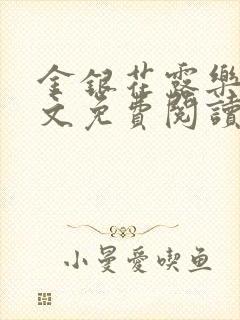 金銀花露樂
文免費閱讀
小曼愛喫鱼